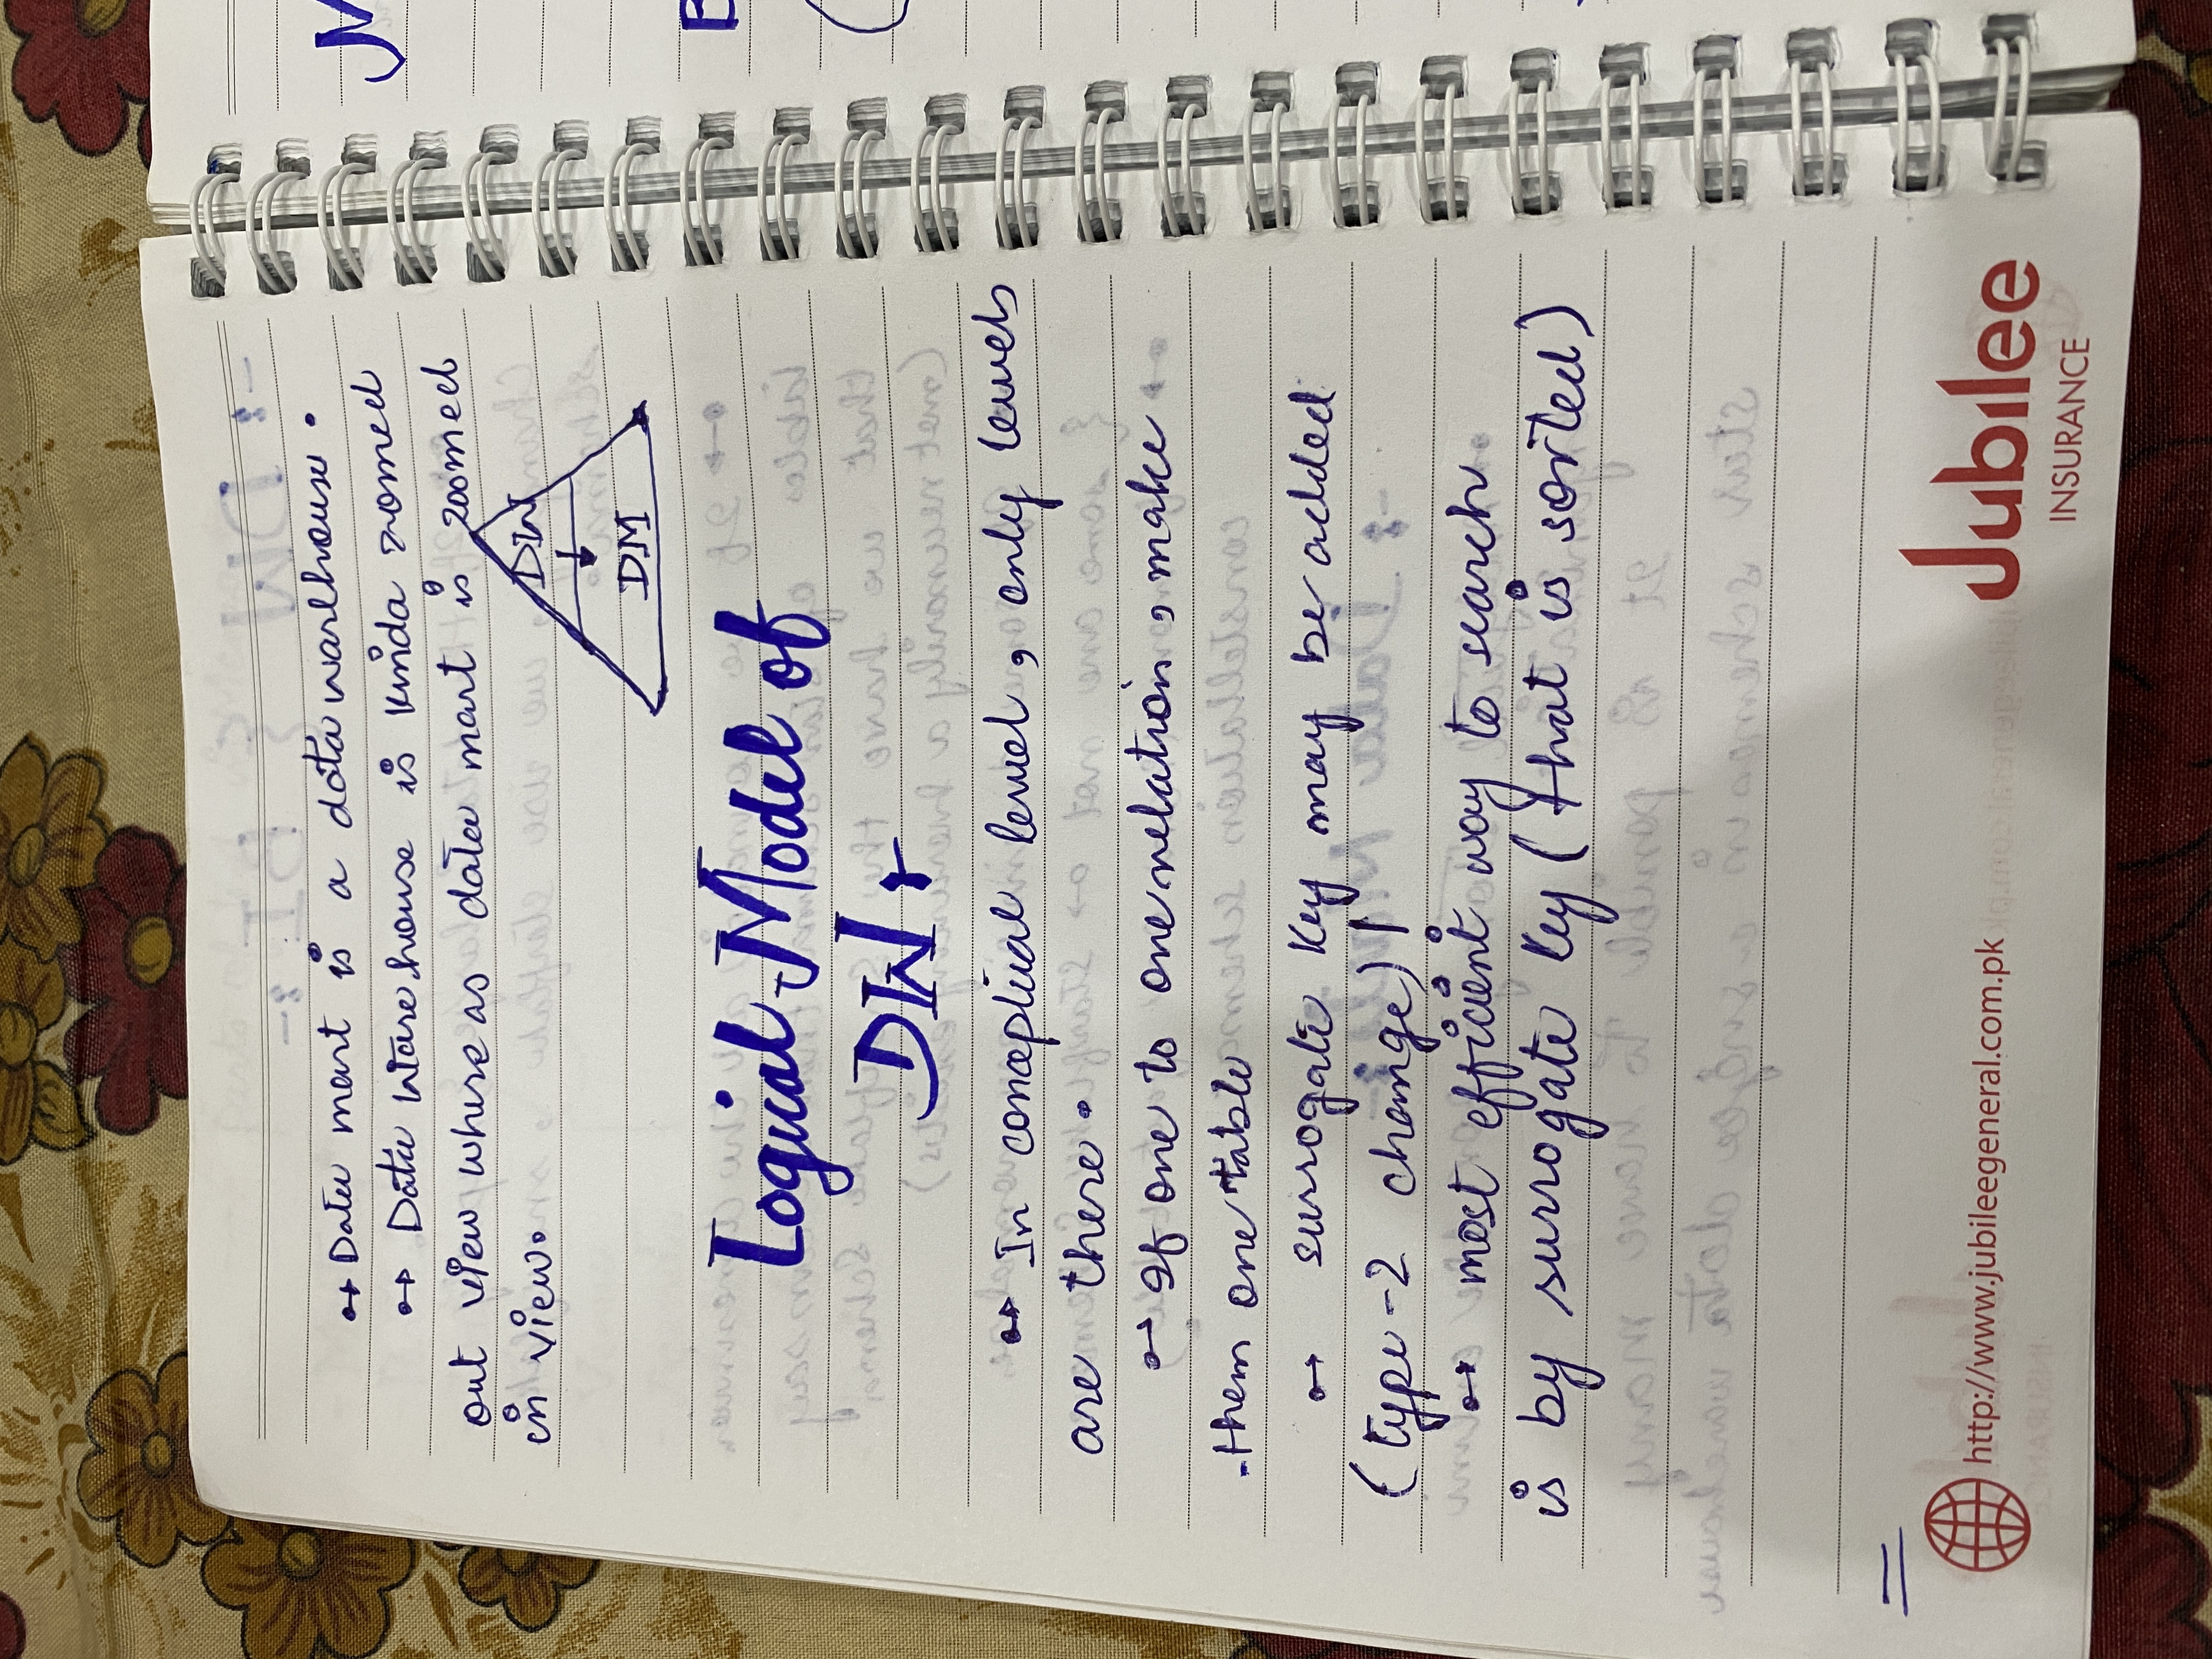 ↦ Data mart is a data warehouse.
↦ Data Warehouse is kinda zoomed
out view where as data mart is zoomed
in view.
DW
↓
DM
Logical Model of
DW :-
↦ In conceptual level, only levels
are there.
↦ If one to one relation, make
them one table
↦ surrogate key may be added
(type-2 change)!
↦ most efficient way to search
is by surrogate key (that is sorted)
http://www.jubileegeneral.com.pk
Jubilee
INSURANCE
M
B